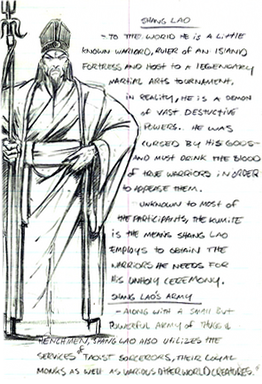 SHANG LAO
- TO THE WORLD HE IS A LITTLE
KNOWN WARLORD, RULER OF AN ISLAND
FORTRESS AND HOST TO A LEGENDARY
MARTIAL ARTS TOURNAMENT.
IN REALITY, HE IS A DEMON
OF VAST DESTUCTIVE
POWERS. HE WAS
CURSED BY HIS GODS
AND MUST DRINK THE BLOOD
OF TRUE WARRIORS IN ORDER
TO APPEASE THEM.
UNKNOWN TO MOST OF
THE PARTICIPANTS, THE KUMITE
IS THE MEANS SHANG LAO
EMPLOYS TO OBTAIN THE
WARRIORS HE NEEDS FOR
HIS UNHOLY CEREMONY.
SHANG LAO'S ARMY
- ALONG WITH A SMALL BUT
POWERFUL ARMY OF THUGS &
HENCHMEN, SHANG LAO ALSO UTILIZES THE
SERVICES OF TAOIST SORCERORS, THEIR LOYAL
MONKS AS WELL AS VARIOUS OTHERWORLD CREATURES.